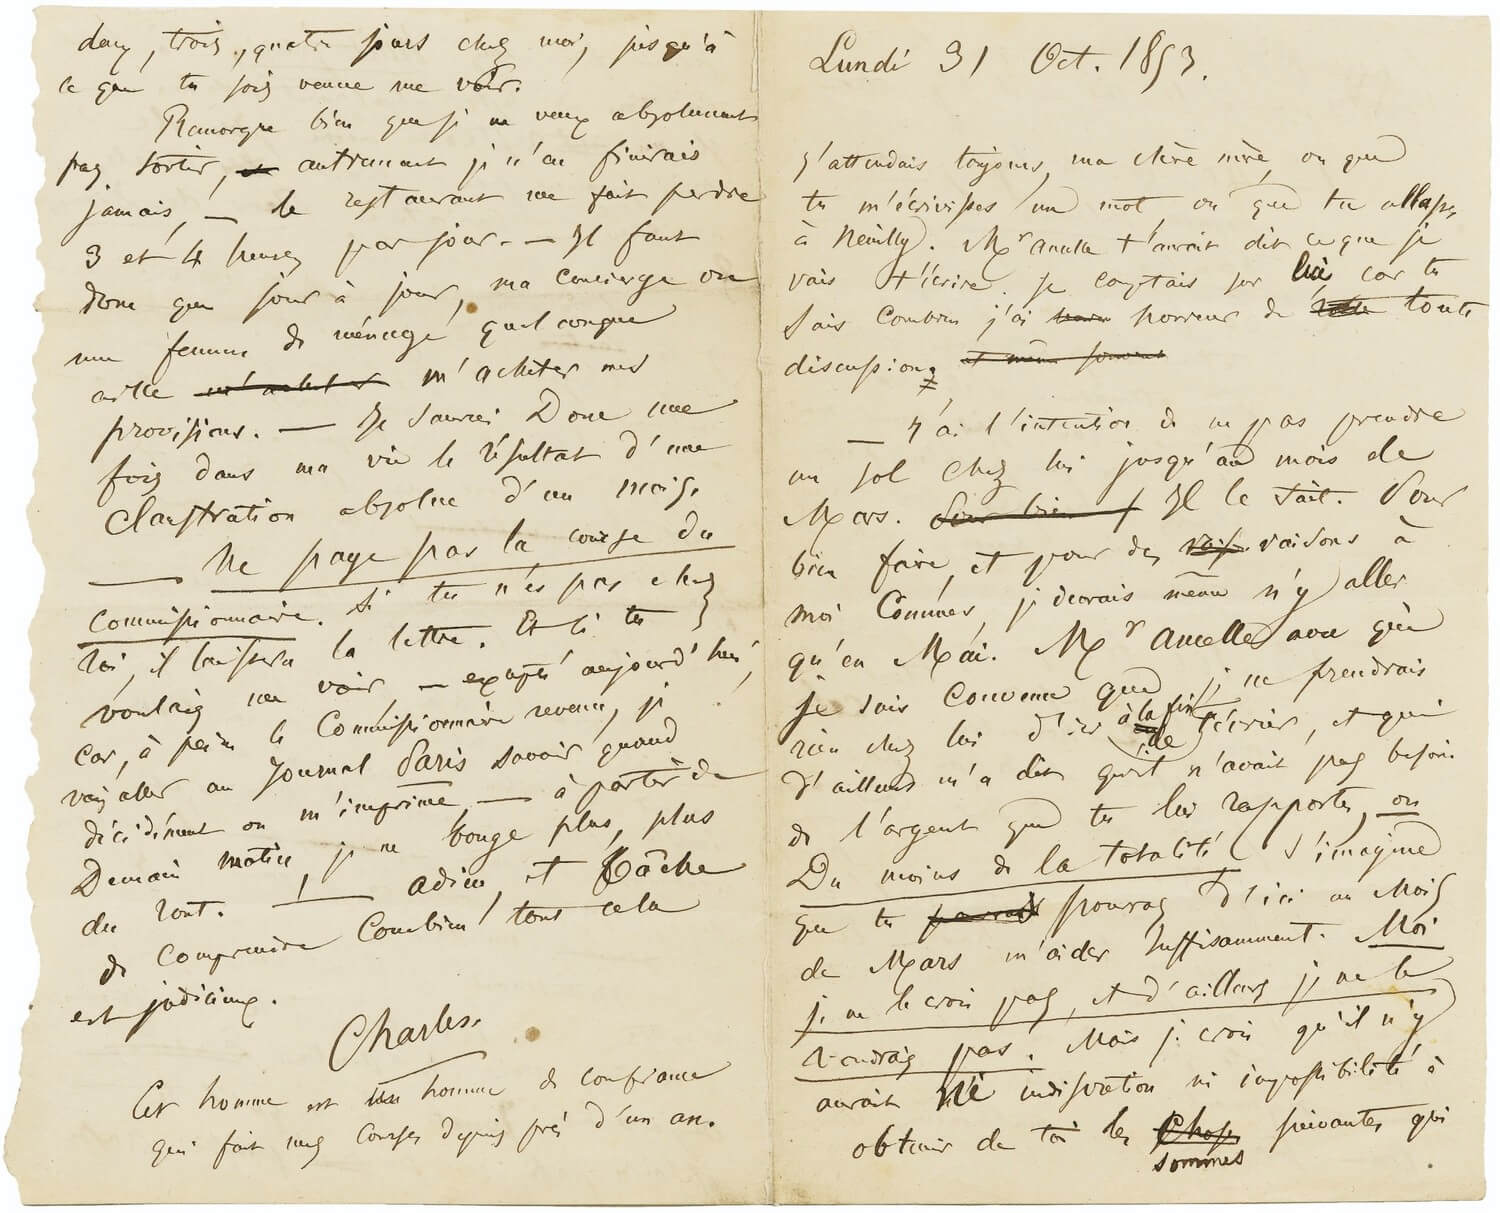 Lundi 31 Oct. 1853.
J'attendais toujours, ma chère mère, ou que
tu m'écrivisses un mot, ou que tu allasses
à Neuilly. Mr Ancelle t'aurait dit ce que je
vais t'écrire. Je comptais sur lui, car tu
sais combien j'ai horreur de toute
discussion
— J'ai l'intention de ne pas prendre
un sol chez lui jusqu'au mois de
Mars. Il le sait. Pour
bien faire, et pour des raisons à
moi connues, je devrais même n'y aller
qu'en Mai. Mr Ancelle avec qui
je suis convenu que je ne prendrais
rien chez lui d'ici à la fin de février, et qui
d'ailleurs m'a dit qu'il n'avait pas besoin
de l'argent que tu lui rapportes, ou
Du moins de la totalité, s'imagine
que tu pourras d'ici au Mois
de Mars m'aider suffisamment. Moi
je ne le crois pas, et d'ailleurs je ne le
voudrais pas. Mais je crois qu'il n'y
aurait ni indiscrétion ni impossibilité à
obtenir de toi les choses suivantes qui
sommes
deux, trois, quatre jours chez moi, jusqu'à
ce que tu sois venue me voir.
Remarque bien que je ne veux absolument
pas sortir, autrement je n'en finirais
jamais, — le restaurant me fait perdre
3 et 4 heures par jour. — Il faut
donc que jour à jour, ma concierge ou
une femme de ménage quelconque
aille m'acheter m'acheter mes
provisions. — Je saurai Donc une
fois dans ma vie le résultat d'une
Claustration absolue d'un mois.
— Ne paye pas la course du
commissionnaire. Si tu n'es pas chez
toi, il laissera la lettre. Et si tu
voulais me voir, — excepté aujourd'hui,
car, à peine le Commissionnaire revenu, je
vais aller au Journal Paris savoir quand
décidément on m'imprime, — à partir de
Demain matin, je ne bouge plus, plus
du tout. — adieu, et tâche
de comprendre combien tout cela
est judicieux.
Charles.
Cet homme est un homme de confiance
qui fait mes courses depuis près d'un an.